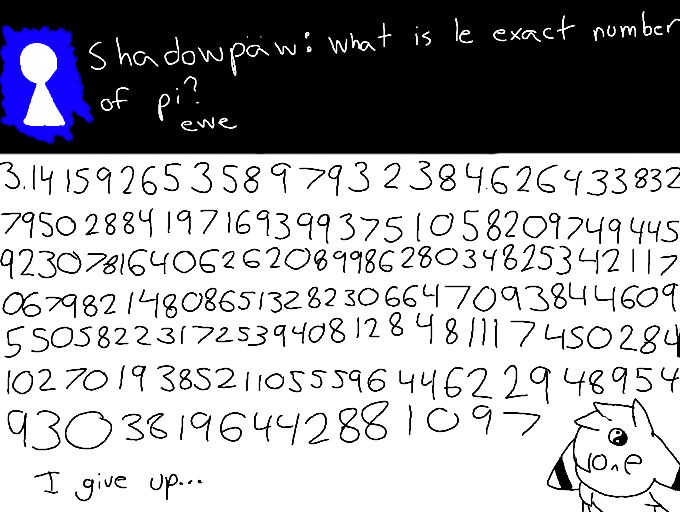 Shadowpaw: what is le exact number
of pi?
ewe
3.1415926535897932384626433832
795028841971693993751058209749445
9230781640626208998628034825342117
067982148086513282306647093844609
55058223172539408128481117450284
102701938521105559644622948954
93038196442881097
I give up...